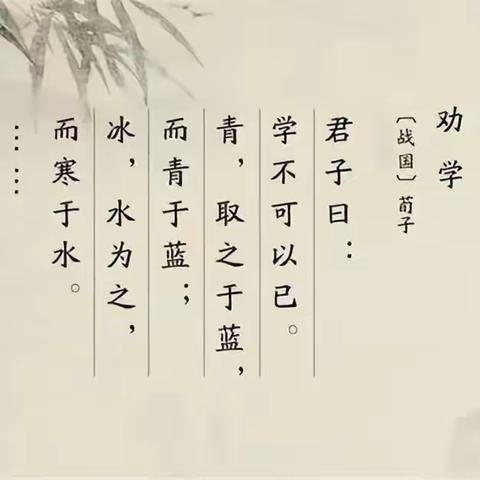 劝学
〔战国〕荀子
君子曰：
学不可以已。
青，取之于蓝，
而青于蓝；
冰，水为之，
而寒于水。
……